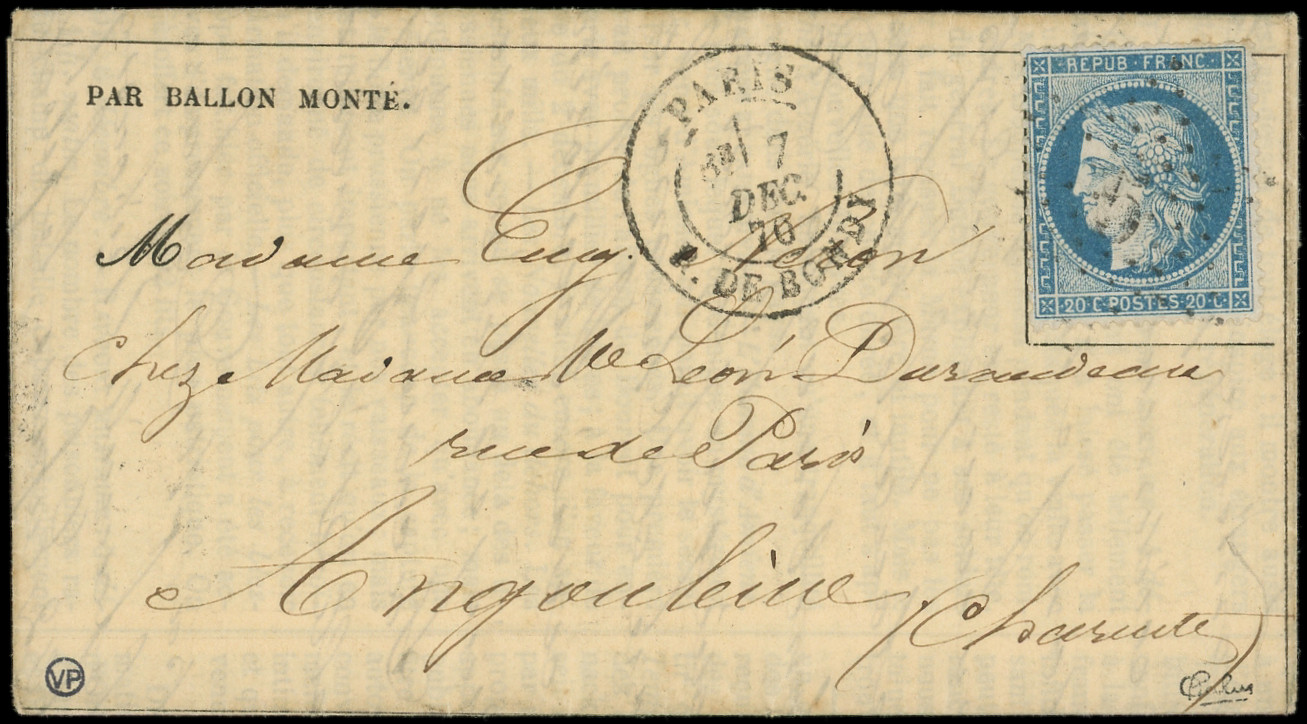 PAR BALLON MONTÉ.
PARIS
5E/ 7
DEC.
70
R. DE BONDY
REPUB. FRANC.
20 C. POSTES 20 C.
Madame Eug.
Chez Madame Ve Léon Durandeau
rue de Paris
Angoulême
Charente
VP